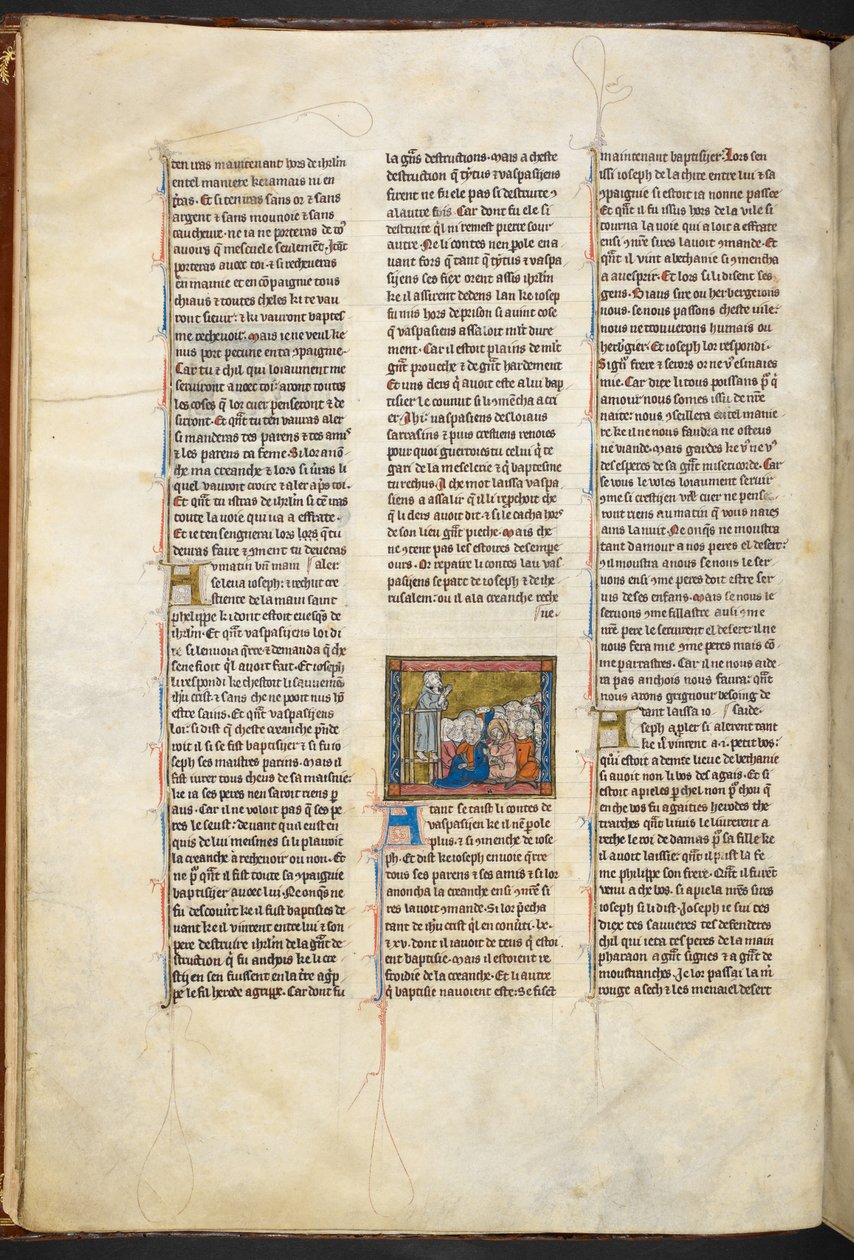 ten iras maintenant hors de ihrlm
entel maniere ke iamais ni en
tras. Et si ten iras sans or & sans
argent & sans monnoie & sans
caucheure. ne ia ne porteras de tos
auoirs q̄ mescuele seulemēt. Icele
porteras auoec toi. & si recheueras
en mainie et en cōpaignie tous
chiaus & toutes cheles ki te vau
ront sieuir. & ki vauront baptes
me rechevoir. Mais ie ne veul ke
nus port pecune en ta ꝯpaignie.
Car tu & chil qui loiaument me
seruiront auoec toi. aront toutes
les coses q̄ lor cuer penseront & de
sirront. Et qn̄t tu ten vauras aler
si manderas tes parens & tes amis
& les parens ta feme. Si lor anon
che ma creanche & lors si uerras li
quel vauront croire & aler ap̄s toi.
Et qn̄t tu istras de ihrlm si ten iras
toute la uoie qui ua a effrate.
Et ie tensengnerai lors lors q̄ tu
deuras faire & ꝯment tu deueras
Au matin bn̄ main aler.
se leua ioseph. & rechut cre
stiente de la main saint
phelippe ki dont estoit euesq̄s de
ihrlm. Et qn̄t vaspasijens loi di
re si lenuoia q̄rre & demanda q̄ che
senefioit ql auoit fait. Et ioseph
li respondi ke chestoit li sauuemēs
ihu crist & sans che ne pooit nus hō
estre saus. Et qn̄t vaspasijens
loi. si dist q̄ cheste creanche pn̄de
roit il si se fist baptisier & si fu io
seph ses maistres parins. Mais il
fist iurer tous cheus de sa maisnie.
ke ia ses peres nen saroit riens p
aus. Car il ne voloit pas q̄ ses pe
res le seust. deuant qui il eust en
quis de lui meismes si li plairoit
la creanche a rechevoir ou non. Et
ne pq̄ qn̄t il fist toute sa ꝯpaignie
baptisijer auoec lui. Ne onq̄s ne
fu descouuert ke il fust baptisies de
uant ke il vinrent entre lui & son
pere destruire ihrlm de la gn̄t de
struction q̄ fu anchois ke li cre
stijen sen fuissent en la tre agp̄
pe le fil herode agrippe. Car dont fu
la gn̄s destructions. Mais a cheste
destruction q̄ tytus & vaspasijens
firent ne fu ele pas si destruite ꝯ
a lautre fois. Car dont fu ele si
destruite ql ni remest pierre sour
autre. Ne li contes nen pole en a
uant fors q̄ tant q̄ tytus & vaspa
sijens ses fiex orent assis ihrlm
ke il assirent dedens lan ke iosep
fu mis hors de prison si auint cose
q̄ vaspasiens assaloit ml̄t dure
ment. Car il estoit plains de ml̄t
gn̄t proueche & de gn̄t hardement
Et uns clers q̄ auoit este a lui bap
tisier le counut si li ꝯmēcha a cri
er. Ahi. vaspasiens desloiaus
sarrasins & puis crestiens renoies
pour quoi guerroies tu celui q̄ te
gari de la meselerie & q̄ baptesme
tu rechus. A che mot laissa vaspa
siens a assalir q̄ il li reprochoit che
q̄ li clers auoit dit. & si le cacha hors
de son lieu gn̄t pieche. Mais che
ne ꝯtent pas les estoires desempe
ours. Or repaire li contes la u vas
pasijens se part de ioseph & de ihe
rusalem. ou il a la creanche reche
ue.
Atant se taist li contes de
vaspasijen ke il nē pole
plus. & si ꝯmenche de iose
ph. Et dist ke ioseph enuoie q̄rre
tous ses parens & ses amis & si lor
anoncha la creanche ensi ꝯmēt si
res lauoit ꝯmande. Si lor p̄echa
tant de ihu crist ql en conuti. lx.
& xv. dont il i auoit de teus q̄ estoi.
ent baptisie. Mais il estoient re
froidie de la creanche. Et li autre
q̄ baptisie nauoient este. Se fisēt
maintenant baptisijer. Lors sen
issi ioseph de la chite entre lui & sa
ꝯpaignie si estoit ia nonne passee
Et qn̄t il fu issus hors de la vile si
tourna la uoie qui aloit a effrate
ensi ꝯmēt sires lauoit ꝯmande. Et
qn̄t il vint a bethanie si ꝯmencha
a auesprir. Et lors si li disent ses
gens. Biaus sire ou herbergerons
nous. se nous passons cheste uile.
nous ne trouuerons humais ou
herbgier. Et ioseph lor respondi.
Signr frere & serors or ne vꝰ esmaies
mie. Car diex li tous poissans p̄ q̄
amour nous somes issu de nr̄e
naite. nous ꝯseillera en tel manie
re ke il ne nous faudra ne osteus
ne viande. Mais gardes ke vꝰ ne vꝰ
des esperes de sa gn̄t misericorde. Car
se vous le voles loiaument seruir
ꝯme si crestijen vr̄e cuer ne pense
ront riens au matin q̄ vous naies
ains la nuit. Ne onq̄s ne moustra
tant damour a nos peres el desert.
ꝯ il moustra a nous se nous le ser
uons ensi ꝯme peres doit estre ser
uis de ses enfans. Mais se nous le
seruons ꝯme fillastre ausi ꝯme
nr̄e pere le seruirent el desert. il ne
nous fera mie ꝯme peres mais cō
me parrastres. Car il ne nous aide
ra pas anchois nous faura. qn̄t
nous arons grignour besoing de
Atant laissa io saide.
seph a pler si alerent tant
ke il vinrent a .i. petit bos.
qui estoit a demie lieue de bethanie
si auoit non li bos des agais. Et si
estoit apieles p chel non p chou q̄
en che bos fu agaities herodes the
trarches qn̄t li iuis le liurerent a
reche le roi de damas p̄ sa fille ke
il auoit laissie. qn̄t il prist la fe
me phelippe son frere. Qn̄t il furēt
venu a che bos. si apiela nr̄es sires
ioseph si li dist. Joseph ie sui tes
diex tes sauuieres tes defenderes
chil qui ieta tes peres de la main
pharaon a gn̄t signes & a gn̄t de
moustranches. Je lor passai la mr
rouge a sech & les menai el desert